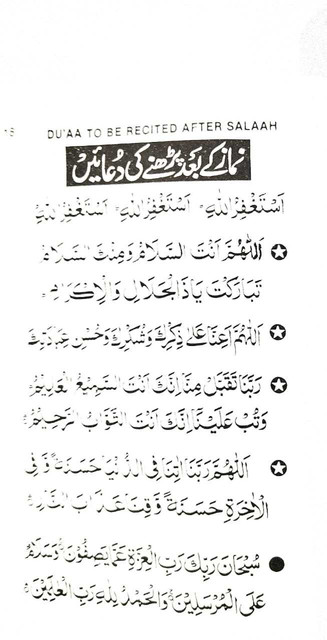 18 DU'AA TO BE RECITED AFTER SALAAH
نماز کے بعد پڑھنے کی دعائیں
اَسْتَغْفِرُ اللهَ اَسْتَغْفِرُ اللهَ اَسْتَغْفِرُ اللهَ
اَللّٰهُمَّ اَنْتَ السَّلَامُ وَمِنْكَ السَّلَامُ
تَبَارَكْتَ يَاذَا الْجَلَالِ وَالْاِكْرَامِ
اَللّٰهُمَّ اَعِنَّا عَلٰى ذِكْرِكَ وَشُكْرِكَ وَحُسْنِ عِبَادَتِكَ
رَبَّنَا تَقَبَّلْ مِنَّا اِنَّكَ اَنْتَ السَّمِيْعُ الْعَلِيْمُ
وَتُبْ عَلَيْنَا اِنَّكَ اَنْتَ التَّوَّابُ الرَّحِيْمُ
اَللّٰهُمَّ رَبَّنَا اٰتِنَا فِى الدُّنْيَا حَسَنَةً وَّفِى
الْاٰخِرَةِ حَسَنَةً وَّقِنَا عَذَابَ النَّارِ
سُبْحَانَ رَبِّكَ رَبِّ الْعِزَّةِ عَمَّا يَصِفُوْنَ وَسَلَامٌ
عَلَى الْمُرْسَلِيْنَ وَالْحَمْدُ لِلّٰهِ رَبِّ الْعٰلَمِيْنَ